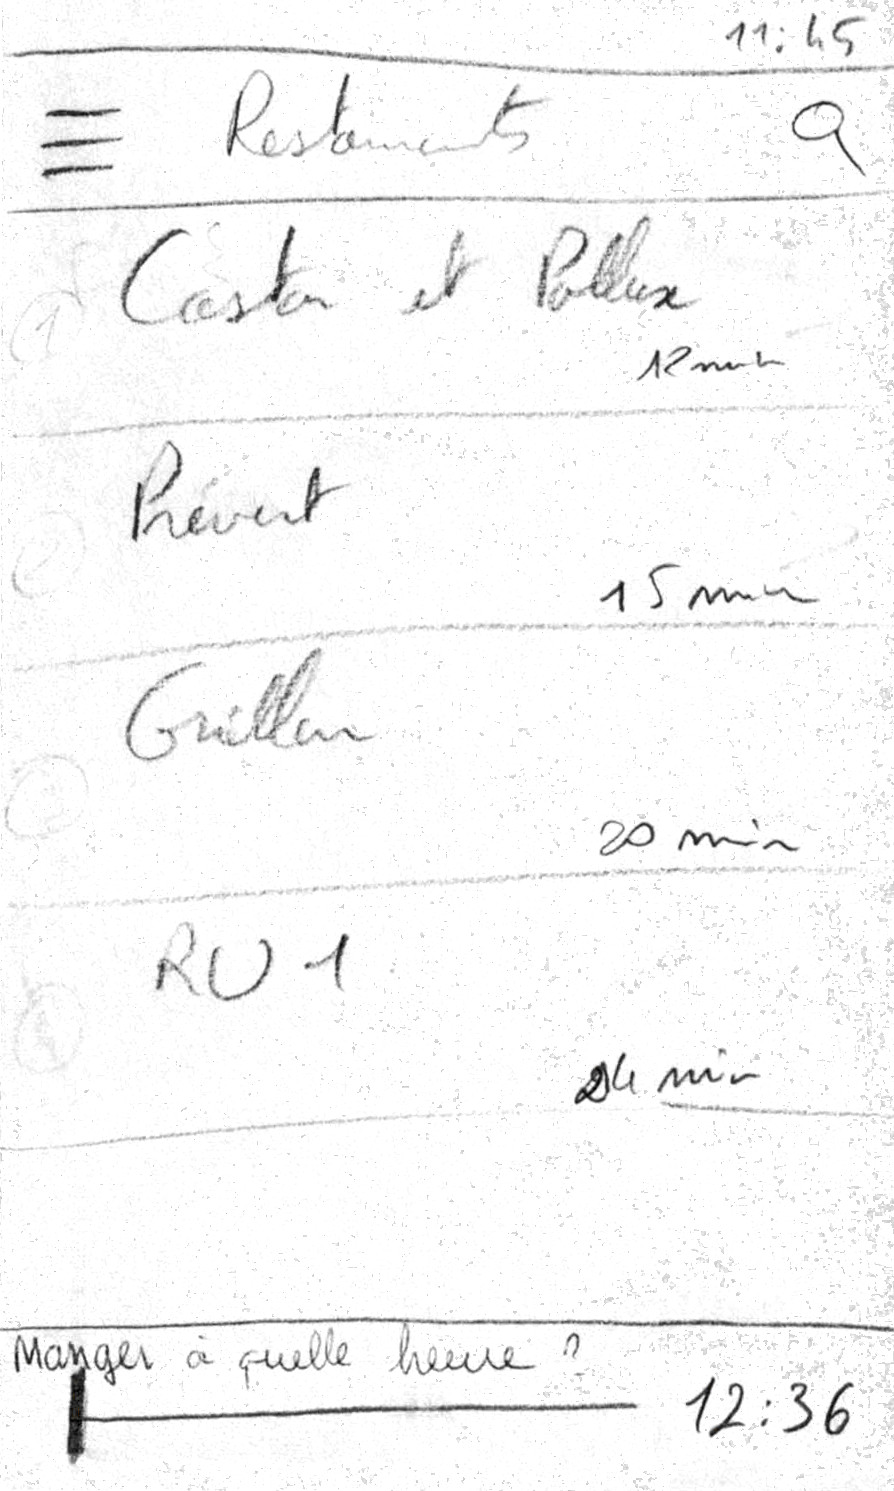 11:45
Restaurants
Castor et Pollux
12 min
Prévert
15 min
Grillon
20 min
RU 1
24 min
Manger à quelle heure ?
12:36